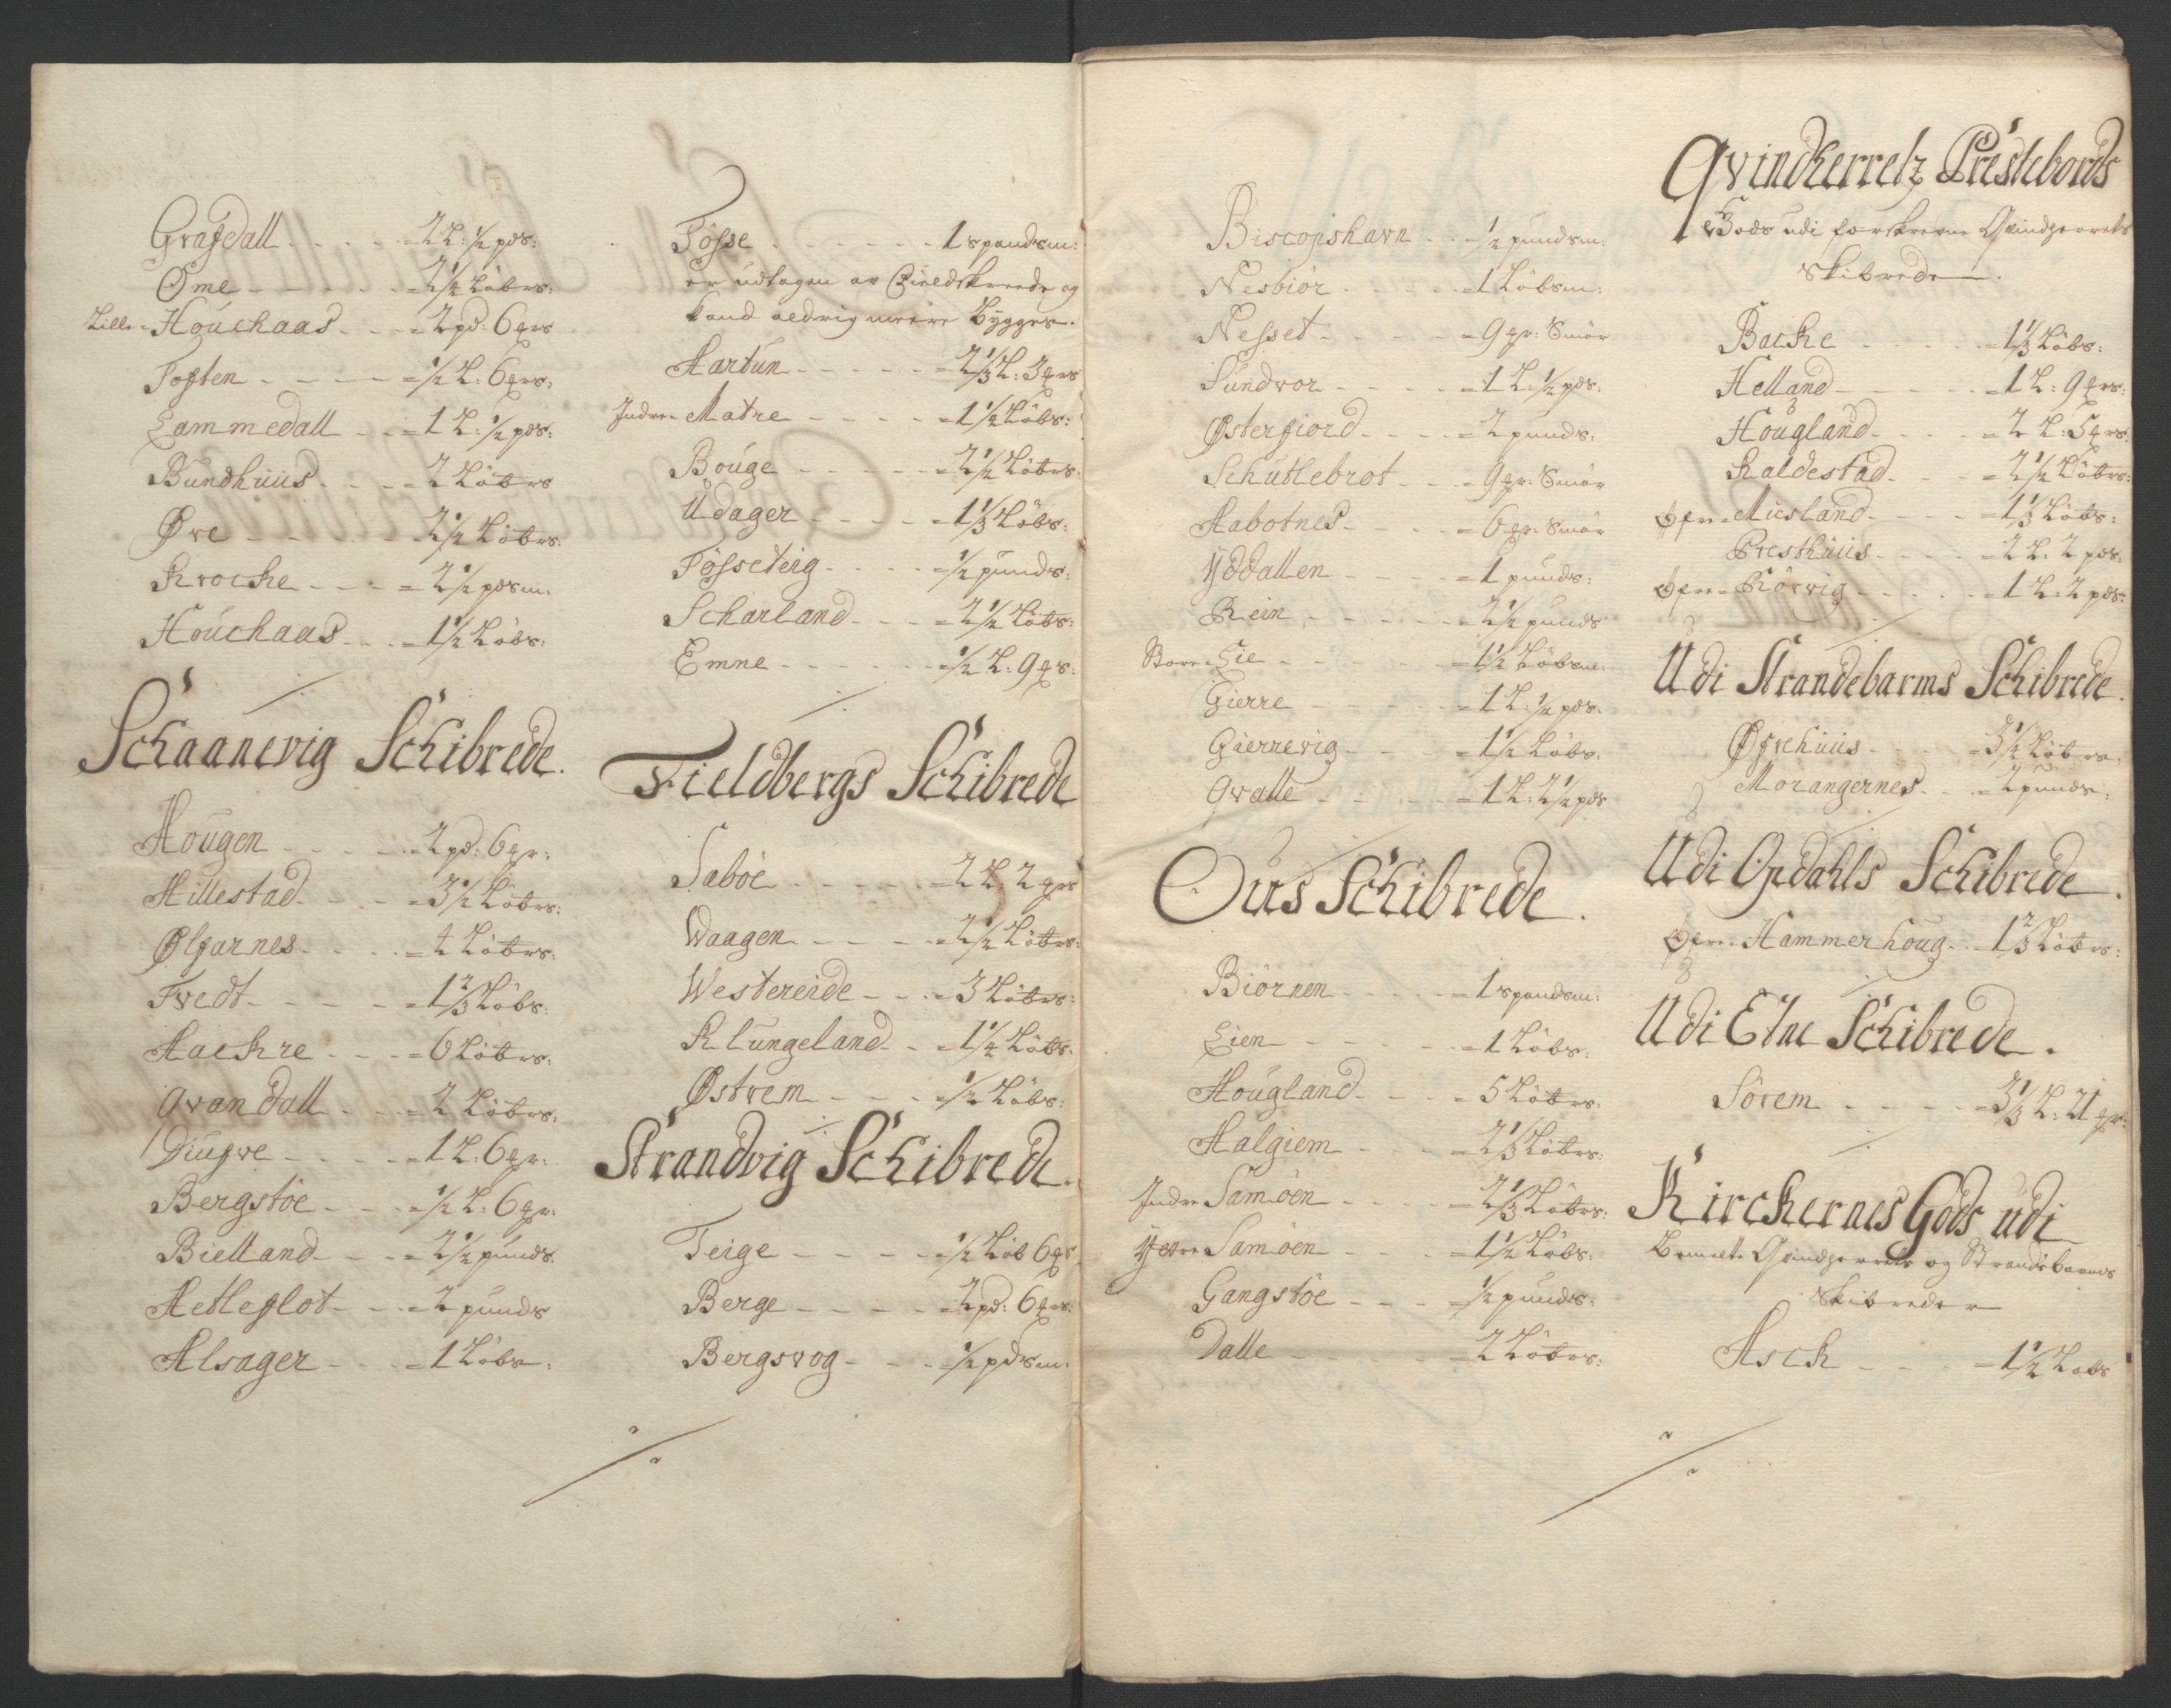 Grafdall - - - 2 L: ½ pds:
Ôme - - - 2½ Löbrs:
Lille Hóuchaas - - 2 pd: 6 grs
Toften - - - ½ L: 6 grs:
Lammedall - - 1 L: ½ pds:
Bundhuus - - 2 Löbrs
Øvre - - - 2½ Löbrs:
Krocke - - - 2½ pdsm:
Hóuchaas - - 1½ Löbs:
Schaanevig Schibrede.
Hougen - - - 2 pd: 6 gr:
Hillestad - - - 3½ Löbrs:
Ølfarnes - - - 4 Löbrs:
Tvedt - - - 1⅔ Löbs:
Aackre - - - 6 Löbrs:
Qvandall - - - 2 Löbrs:
Diugve - - - 1 L: 6 gr:
Bergstöe - - - ½ L: 6 gr:
Bielland - - - 2½ punds.
Hetleflot - - - 2 punds
Alsager - - - 1 Löbs:
Fösse - - - 1 spandsm:
er udtagen av Fieldskreede og
kand aldrig meere bygges.
Aartun - - - 2⅓ L: 3 grs
Indre Matre - - - 1½ Löbs:
Bouge - - - 2½ Löbrs:
Udager - - - 1⅓ Löbs:
Fösseteig - - - ½ punds:
Scharland - - - 2½ Löbs:
Emne - - - ½ L: 9 grs:
Fieldbergs Schibrede
Saböe - - - 2 L 2 grs
Waagen - - - 2½ Löbrs:
Westereide - - - 3 Löbrs:
Klungeland - - 1¼ Löbs:
Østrem - - - ½ Löbs:
Strandvig Schibrede.
Teige - - - ½ Löb 6 grs
Berge - - - 2 pd: 6 grs:
Bergsvog - - - ½ pdsm:
Biscopshavn - - ½ pundsm:
Nesbiör - - - 1 Löbsm:
Nesset - - - 9 gr: Smör
Sundvor - - - 1 L: ½ pds:
Østerfiord - - - 2 punds:
Schutlebrot - - 9 gr: Smör
Aabotnes - - - 6 gr: Smör
Ÿddallen - - - 1 punds:
Rein - - - 2½ punds
Store Lie - - - 1½ Löbsm:
Gierre - - - 1 L: ½ pds:
Gierrevig - - - 1½ Löbs.
Qvalle - - - 1 L: 2½ pds
Ous Schibrede.
Biörnen - - - 1 spandsm:
Lien - - - 1 Löbs:
Hougland - - - 5 Löbrs:
Halgiem - - - 2⅓ Löbrs:
Indre Samöen - - - 2⅓ Löbrs:
Ÿttre Samöen - - - 1½ Löbs:
Gangstöe - - - ½ punds:
Dalle - - - 2 Löbrs:
Qvindherretz Prestebords
Gods udi forskrevne Qvindherrets
Skibrede.
Backe - - - 1⅓ Löbs:
Helland - - - 1 L: 9 grs:
Hougland - - - 2 L: 5 grs:
Kaldestad - - - 2½ Löbrs:
Øfre Miesland - - - 1⅓ Löbs:
Presthuus - - - 2 L: 2 pds:
Øfre Rörvig - - - 1 L: 2 pds:
Udi Strandebarms Schibrede.
Øfrehuus - - - 3½ Löbrs.
Morangernes - - - 2 punds:
Udi Opdahls Schibrede.
Øfre Hammerhoug - - 1⅔ Löbrs:
Udi Etne Schibrede.
Sörem - - - 3⅓ L: 21 gr:
Kirckernes Gods udi
bemelte Qvindherrets og Strandebarms
Skibreder
Asck - - - 1½ Löbs